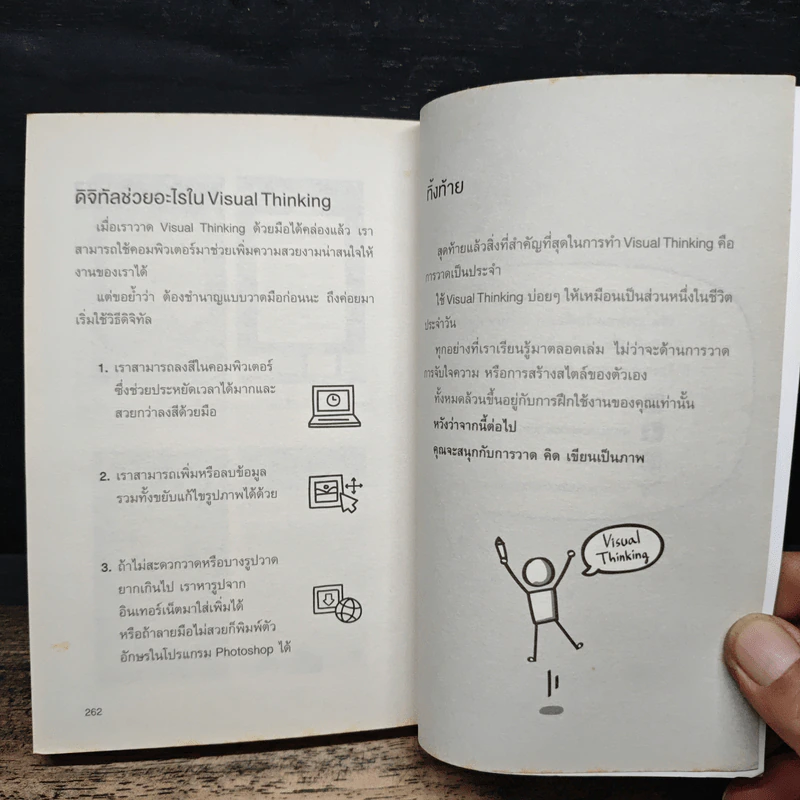 ดิจิทัลช่วยอะไรใน Visual Thinking
เมื่อเราวาด Visual Thinking ด้วยมือได้คล่องแล้ว เรา
สามารถใช้คอมพิวเตอร์มาช่วยเพิ่มความสวยงามน่าสนใจให้
งานของเราได้
แต่ขอย้ำว่า ต้องชำนาญแบบวาดมือก่อนนะ ถึงค่อยมา
เริ่มใช้วิธีดิจิทัล
1. เราสามารถลงสีในคอมพิวเตอร์
ซึ่งช่วยประหยัดเวลาได้มากและ
สวยกว่าลงสีด้วยมือ
2. เราสามารถเพิ่มหรือลบข้อมูล
รวมทั้งขยับแก้ไขรูปภาพได้ด้วย
3. ถ้าไม่สะดวกวาดหรือบางรูปวาด
ยากเกินไป เราหารูปจาก
อินเทอร์เน็ตมาใส่เพิ่มได้
หรือถ้าลายมือไม่สวยก็พิมพ์ตัว
อักษรในโปรแกรม Photoshop ได้
262
ทิ้งท้าย
สุดท้ายแล้วสิ่งที่สำคัญที่สุดในการทำ Visual Thinking คือ
การวาดเป็นประจำ
ใช้ Visual Thinking บ่อยๆ ให้เหมือนเป็นส่วนหนึ่งในชีวิต
ประจำวัน
ทุกอย่างที่เราเรียนรู้มาตลอดเล่ม ไม่ว่าจะด้านการวาด
การจับใจความ หรือการสร้างสไตล์ของตัวเอง
ทั้งหมดล้วนขึ้นอยู่กับการฝึกใช้งานของคุณเท่านั้น
หวังว่าจากนี้ต่อไป
คุณจะสนุกกับการวาด คิด เขียนเป็นภาพ
Visual
Thinking